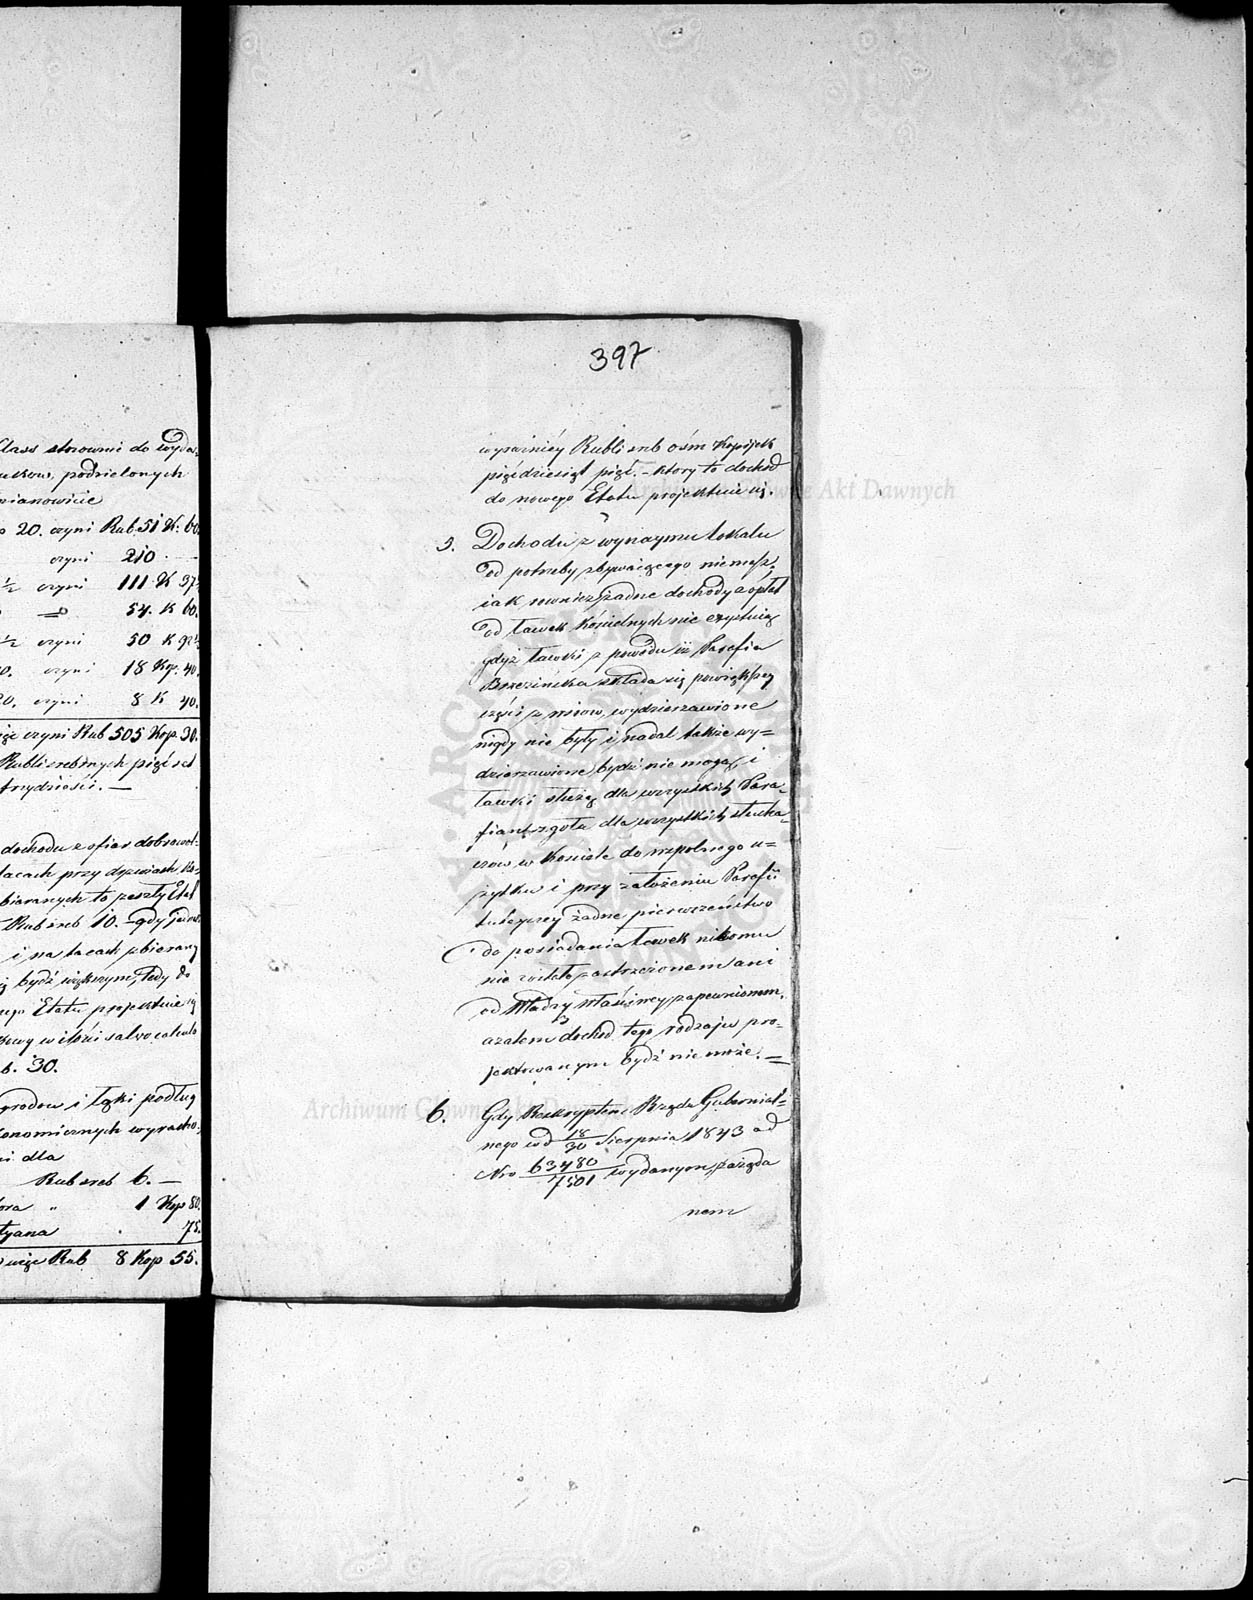 Class stosownie do wyda-
podzielonych
mianowicie
20. czyni Rub 51 K. 60.
czyni 210 -
½ czyni 111 K 37½
54. K 60.
½ czyni 50 K 92½
czyni 18 Kop. 40.
20. czyni 8 K 40.
czyni Rub 505 Kop 30.
Rubli srebrnych pięć set
trzydzieści. —
dochodu z ofiar dobrowol-
tacach przy drzwiach Ko-
bieranych to zeszły Etat
Rub sreb 10. - gdy jedna
i na tacach zbierany
bydź większym, tedy do
Etatu projektuie się
w ilości salvo calculo
30.
ogrodow i łąki podług
konomicznych wyracho-
dla
Rub sreb 6. —
" 1 Kop 80.
75.
więc Rub 8 Kop 55.
397
Rubli sreb ośm Kopijek
pięćdziesiąt pięć. - który to dochod
do nowego Etatu projektuie się.
5. Dochodu z wynaymu lokalu
od potrzeby zbywaiącego niemasz,
iak rownież żadne dochody z opłat
od ławek Kościelnych nie exystuią
gdyż ławki z powodu iż Parafia
Brzezińska składa się powiększey
części z wiosk, wydzierzawione
nigdy nie były i nadal także wy-
dzierzawione bydź nie mogą, i
ławki służą dla wszystkich Para-
fian zgoła dla wszystkich słucha-
czów w Kościele do wspolnego u-
żytku i przy założeniu Parafii
tuteyszey żadne pierwszeństwo
do posiadania ławek nikomu
nie zostało zastrzeżonem ani
od Władzy właściwey zapewnionem,
azatem dochod tego rodzaju pro-
jektowanym bydź nie może. —
6. Gdy Reskryptem Rządu Gubernial-
nego w d 18/30 Sierpnia 1843 ad
Nro 63480/7501 wydanym, zażąda
nem
Archiwum Główne Akt Dawnych
Archiwum Główne Akt Dawnych